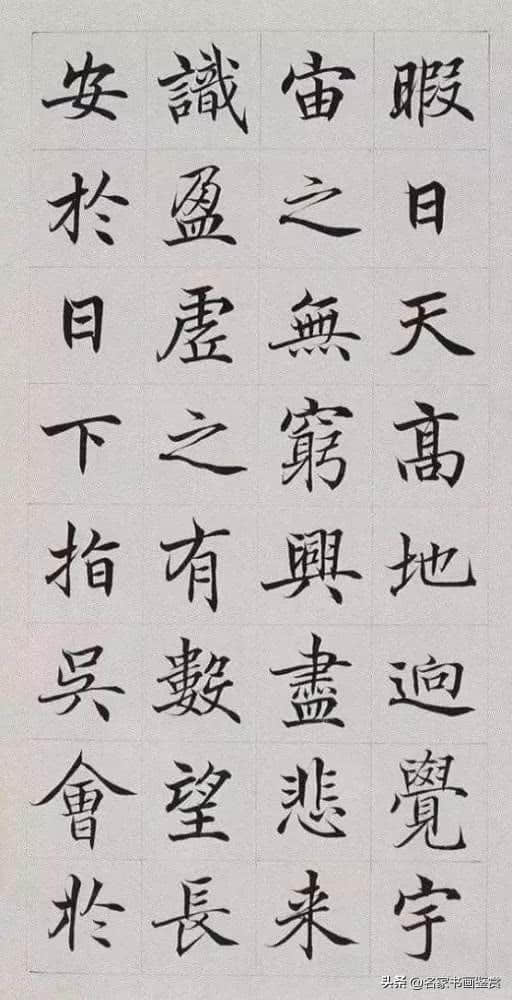 暇日天高地逈覺宇
宙之無窮興盡悲来
識盈虛之有數望長
安於日下指吳會於
头条 @名家书画鉴赏